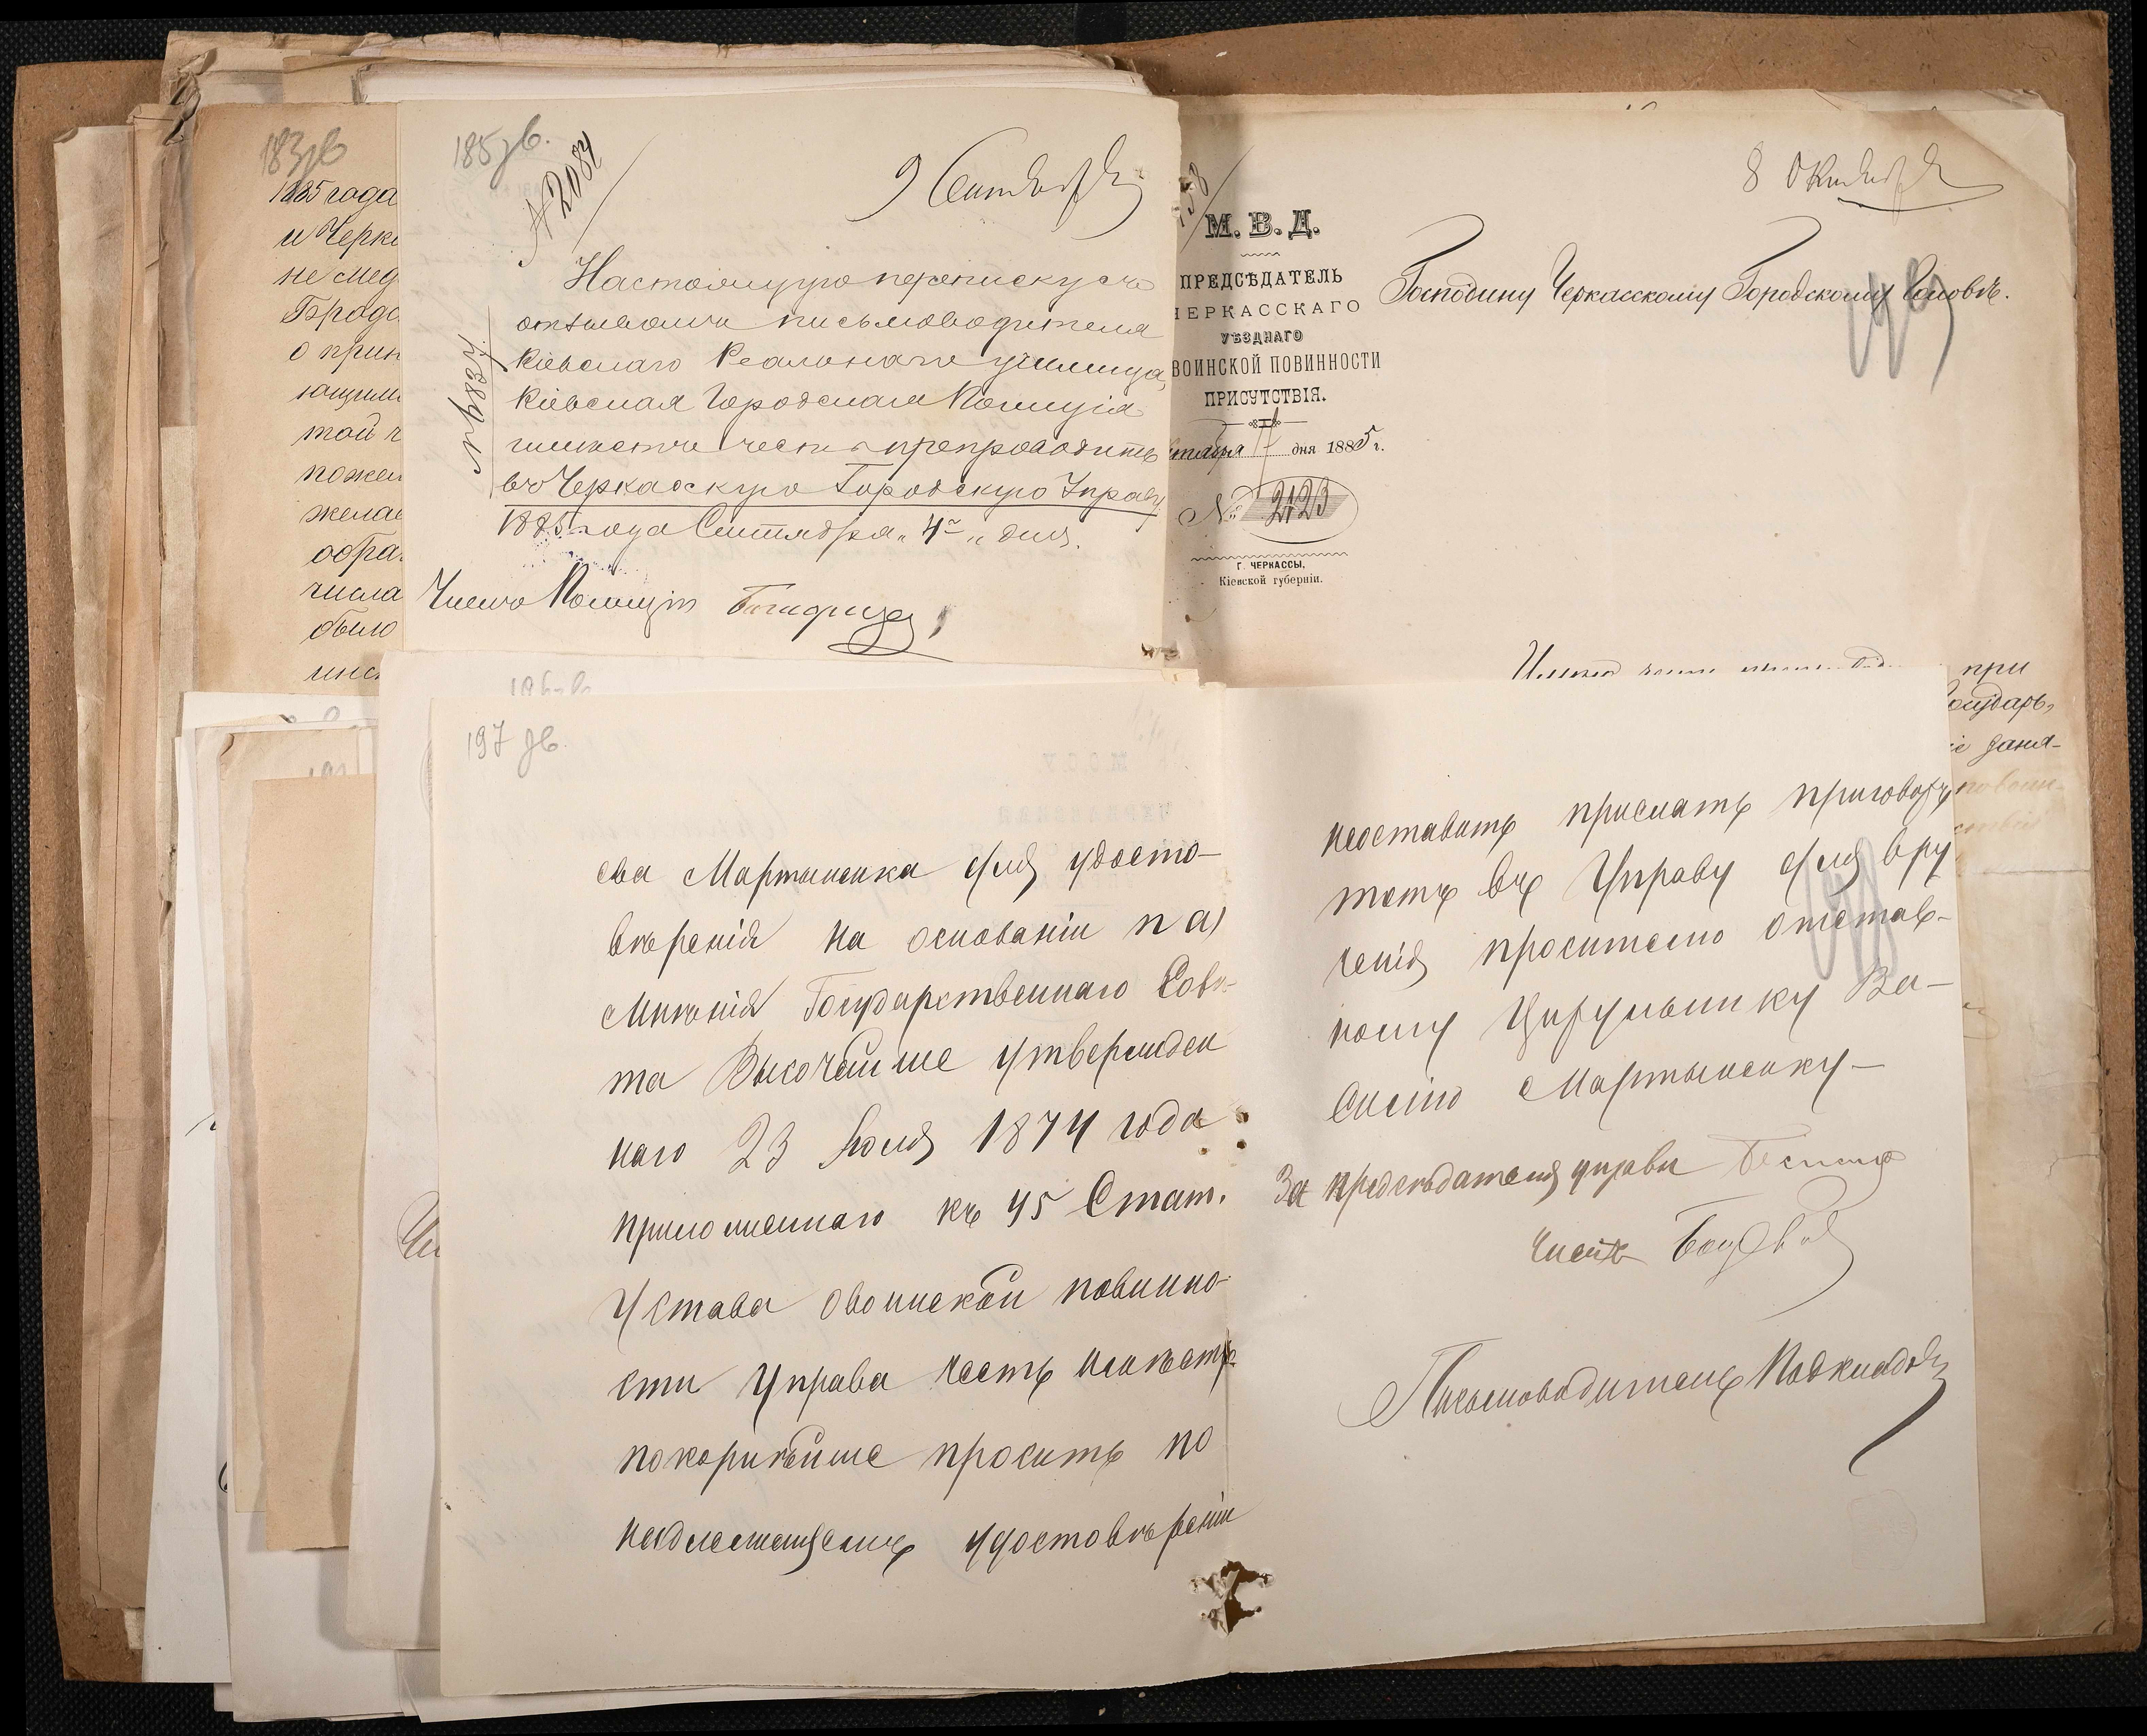 183зв
1885 года
и Черк
не мед
Бродс
о прин
ющим
той ч
пожел
желае
обра
числа
было
инс
185 зв.
№ 2084
9 Сентября
Настоящую переписку съ
отзывомъ письмоводителя
Кіевскаго Реальнаго училища,
Кіевская Городская Коммисія
имѣетъ честь препроводить
въ Черкасскую Городскую Управу
1885 года Сентября „4го„ дня.
Членъ Коммисіи
8 Октября
М. В. Д.
ПРЕДСѢДАТЕЛЬ
ЧЕРКАССКАГО
УѢЗДНАГО
ВОИНСКОЙ ПОВИННОСТИ
ПРИСУТСТВІЯ.
7 дня 1885 г.
№ 2123
Г. ЧЕРКАССЫ,
Кіевской губерніи.
Господину Черкасскому Городскому Головѣ.
при
Государь,
заня-
197 зв.
сва Мартыненка для удосто-
вѣренія на основаніи п а)
Мнѣнія Государственнаго Совѣ-
та Высочайше утвержден
наго 23 Іюля 1874 года
приложеннаго къ 45 Стат.
Устава о воинской повинно-
сти Управа честь имѣетъ
покорнѣйше просить по
надлежащемъ удостовѣреніи
неоставить прислать приговоръ
тотъ въ Управу для вру
ченія просителю отстав-
ному Цирульнику Ва-
силію Мартыненку —
За предсѣдателя управы
Членъ
Письмоводитель Подкладовъ